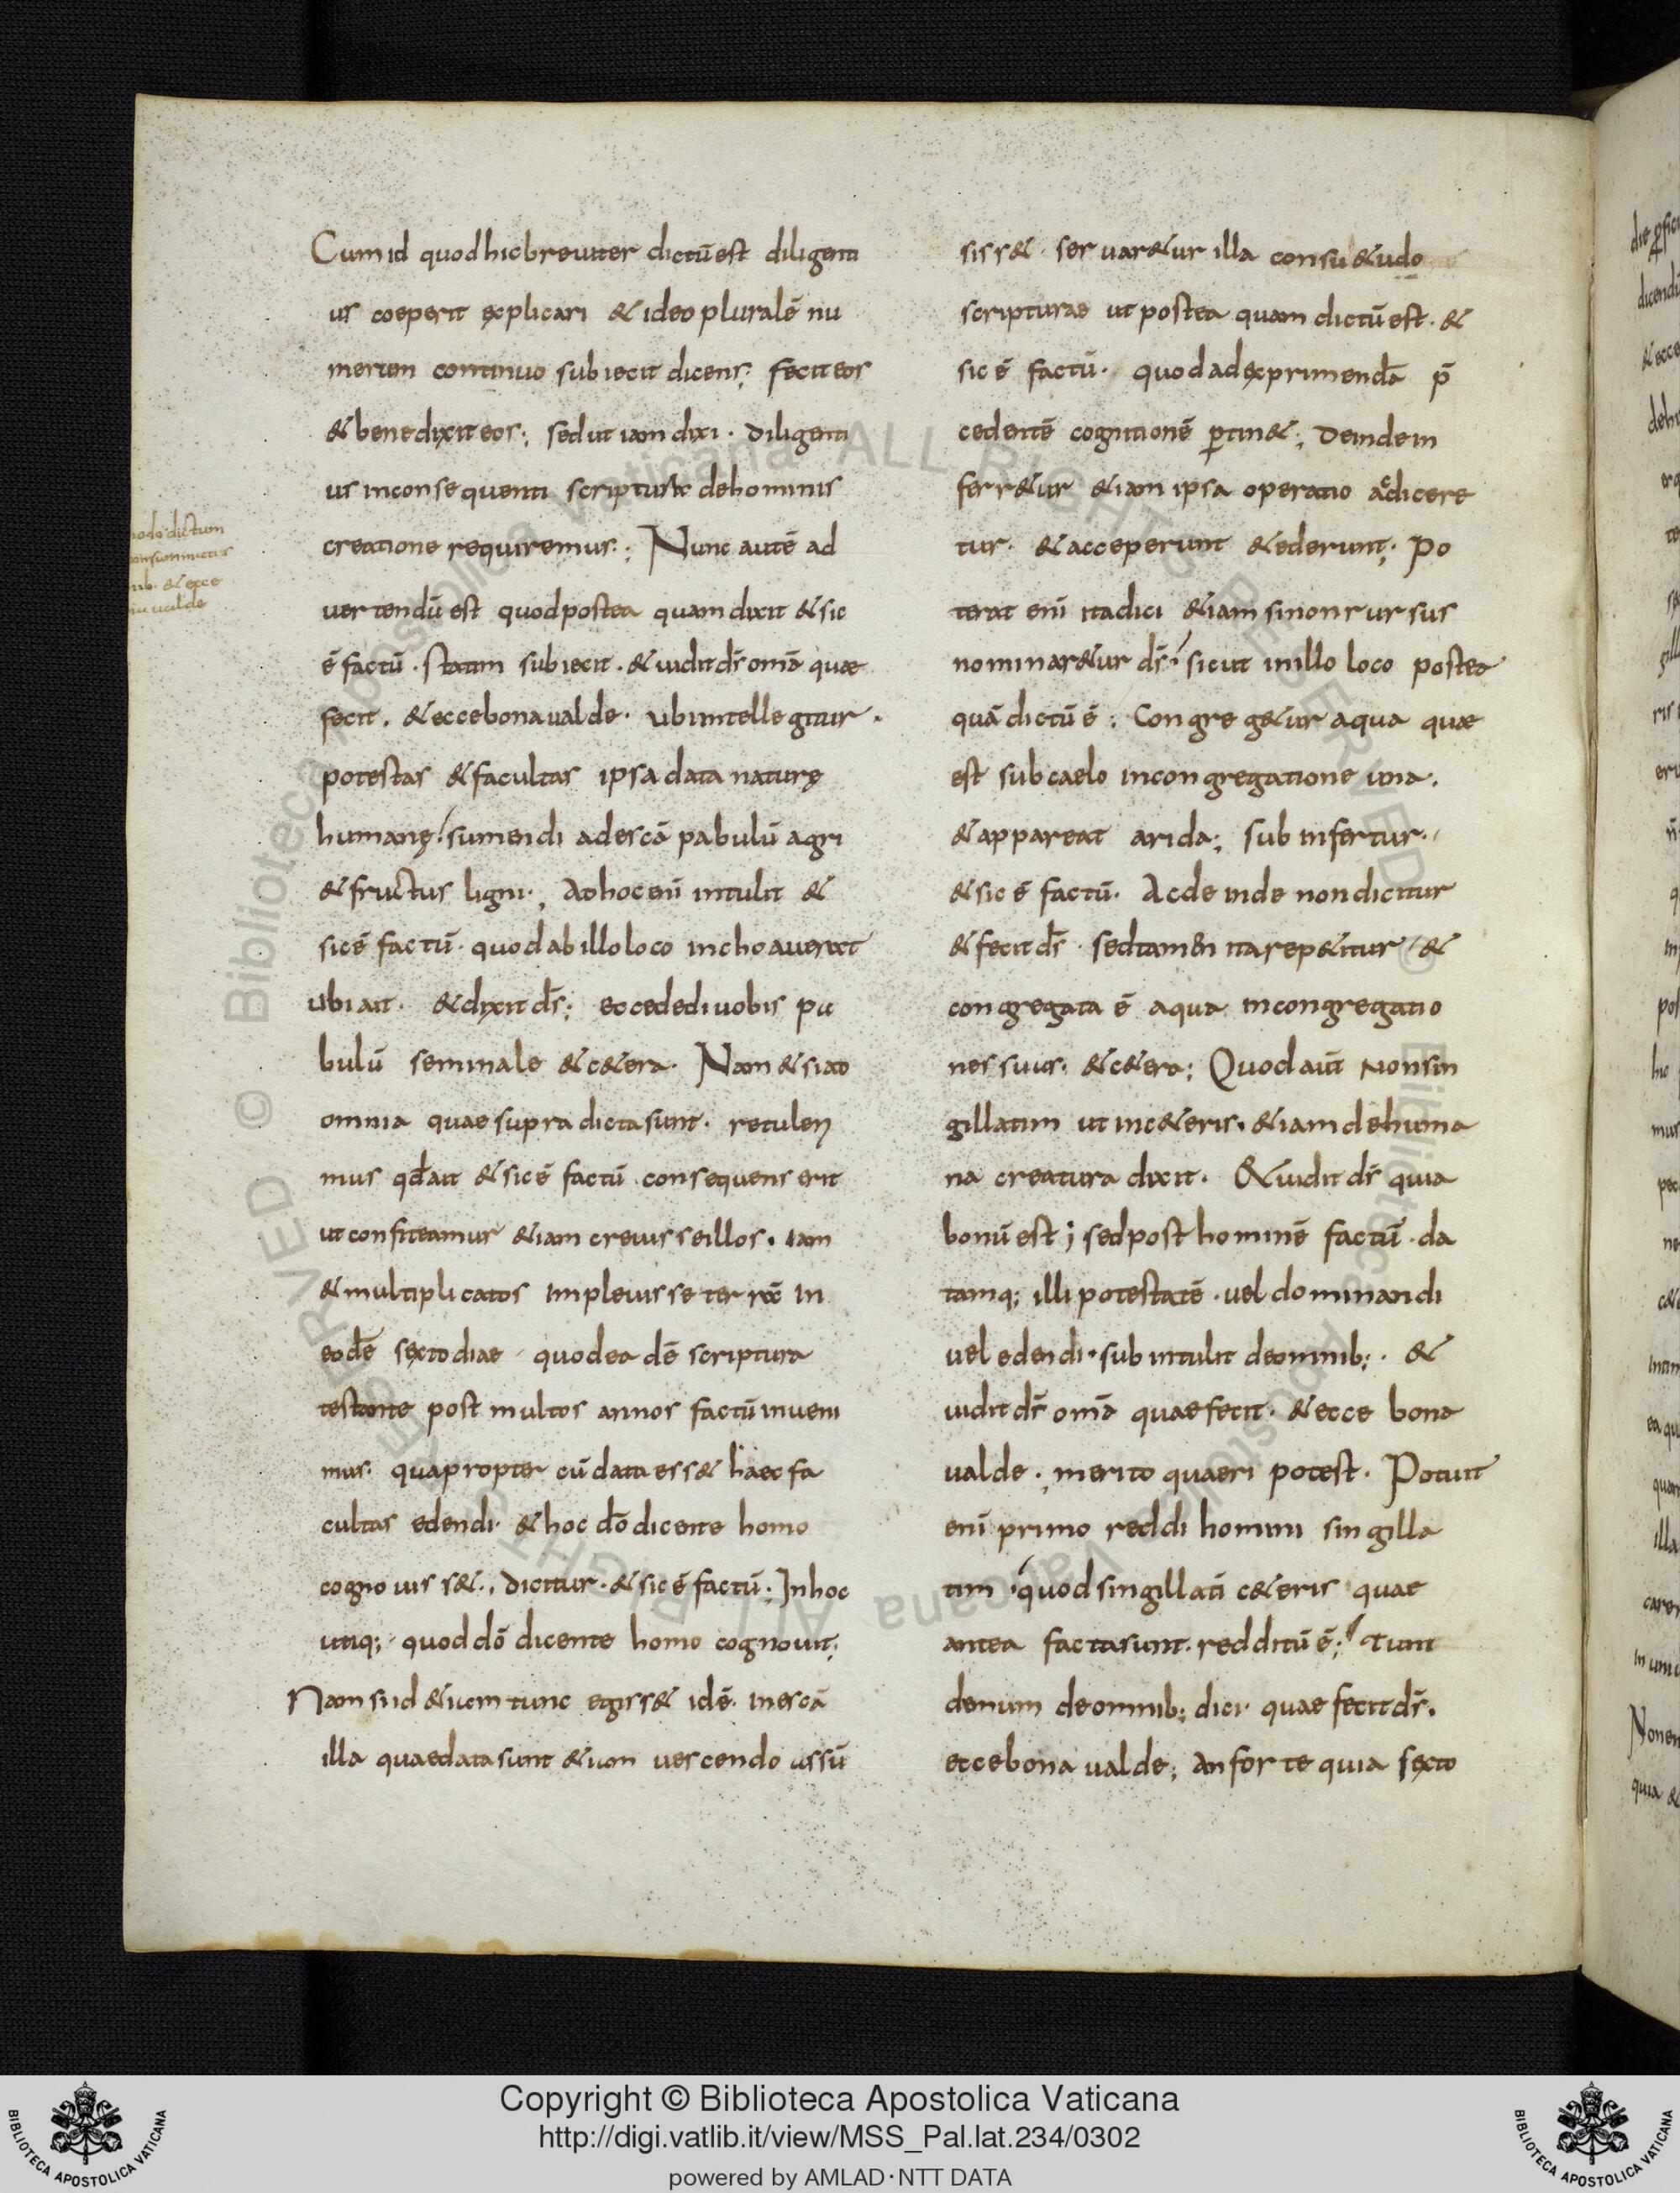 Cum id quod hic breuiter dictū est diligenti
us coeperit explicari & ideo pluralē nu
merum continuo subiecit dicens; fecit eos
& benedixit eos; sed ut iam dixi · diligenti
us in consequenti scriptura de hominis
creatione requiremus; Nunc autē ad
uertendū est quod postea quam dixit & sic
ē factū · statim subiecit · & uidit dſ omā quae
fecit · & ecce bona ualde · ubi intellegitur ·
potestas & facultas ipsa data naturę
humanę sumendi ad escā pabulū agri
& fructus ligni ·, Ad hoc enī intulit &
sic ē factū · quod ab illo loco inchoauerat
ubi ait · & dixit dſ; ecce dedi uobis pa
bulū seminale & c&era · Nam & si ad
omnia quae supra dicta sunt · retuleri
mus qđ ait & sic ē factū consequens erit
ut confiteamur &iam creuisse illos · iam
& multiplicatos impleuisse terrā in
eodē sexto diae quod eadē scriptura
testante post multos annos factū inueni
mus · quapropter cū data ess& haec fa
cultas edendi · & hoc dō dicente homo
cognouiss& ·, dicitur · & sic ē factū; In hoc
utiq; · quod dō dicente homo cognouit;
Nam si id &iam tunc egiss& idē · in escā
illa quae data sunt &iam uescendo assū
siss& · seruar&ur illa consu&udo
scripturae ut postea quam dictū est · &
sic ē factū · quod ad exprimendā p̄
cedentē cognitionē ptin&; Deinde in
ferr&ur &iam ipsa operatio ac dicere
tur · & acceperunt & ederunt; Po
terat enī ita dici &iam si non rursus
nominar&ur dſ sicut in illo loco postea
quā dictū ē; Congreg&ur aqua quae
est sub caelo in congregatione una ·
& appareat arida; subinfertur ·
& sic ē factū · Ac deinde non dicitur
& fecit dſ · sed tamen ita rep&itur &
congregata ē aqua in congregatio
nes suas · & c&era; Quod aūt non sin
gillatim ut in c&eris · &iam de huma
na creatura dixit · & uidit dſ quia
bonū est; sed post hominē factū · da
tamq; illi potestatē · uel dominandi
uel edendi · subintulit de omnib; · &
uidit dſ omā quae fecit · & ecce bona
ualde ·, merito quaeri potest · Potuit
enī primo reddi homini singilla
tim · quod singillati c&eris quae
antea facta sunt · redditū ē; Tum
demum de omnib; dici · quae fecit dſ ·
ecce bona ualde; an forte quia sexto
Copyright © Biblioteca Apostolica Vaticana
http://digi.vatlib.it/view/MSS_Pal.lat.234/0302
powered by AMLAD·NTT DATA
BIBLIOTECA APOSTOLICA VATICANA
BIBLIOTECA APOSTOLICA VATICANA